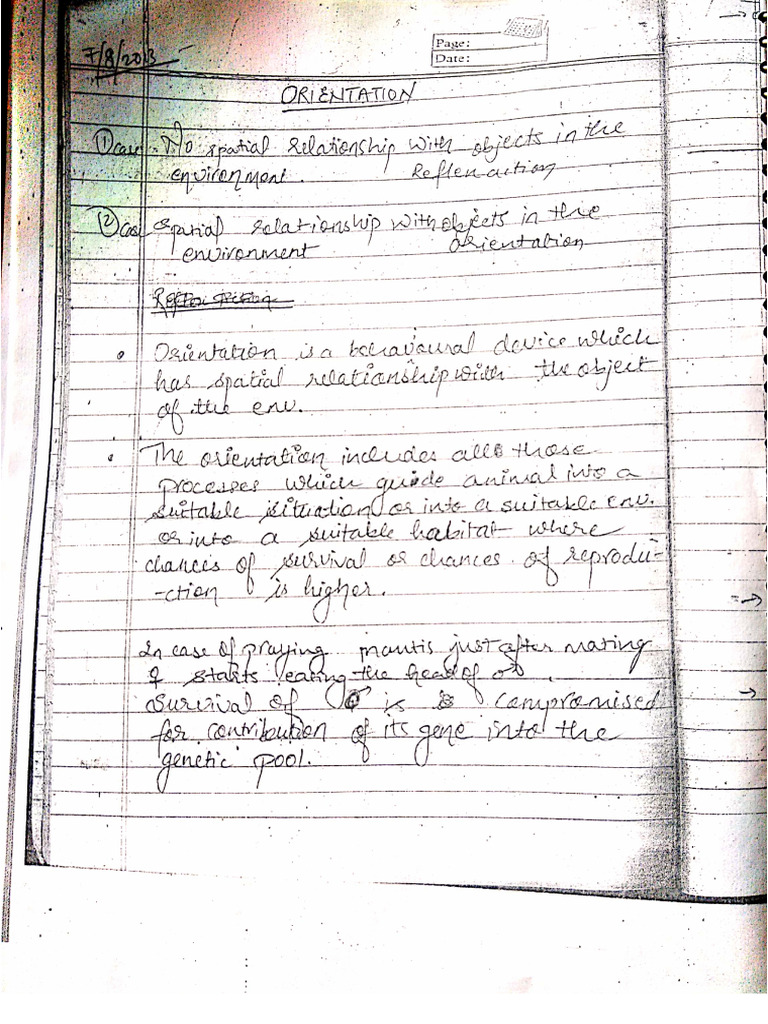 7/8/2013
Page:
Date:
ORIENTATION
① case - No spatial relationship with objects in the
environment. Reflex action
② Case spatial relationship with objects in the
environment orientation
Reflex Action
• Orientation is a behavioural device which
has spatial relationship with the object
of the env.
• The orientation includes all those
processes which guide animal into a
suitable situation or into a suitable env.
or into a suitable habitat where
chances of survival or chances of reprodu-
-ction is higher.
In case of praying mantis just after mating
♀ starts eating the head of ♂.
Survival of ♂ is compromised
for contribution of its gene into the
genetic pool.